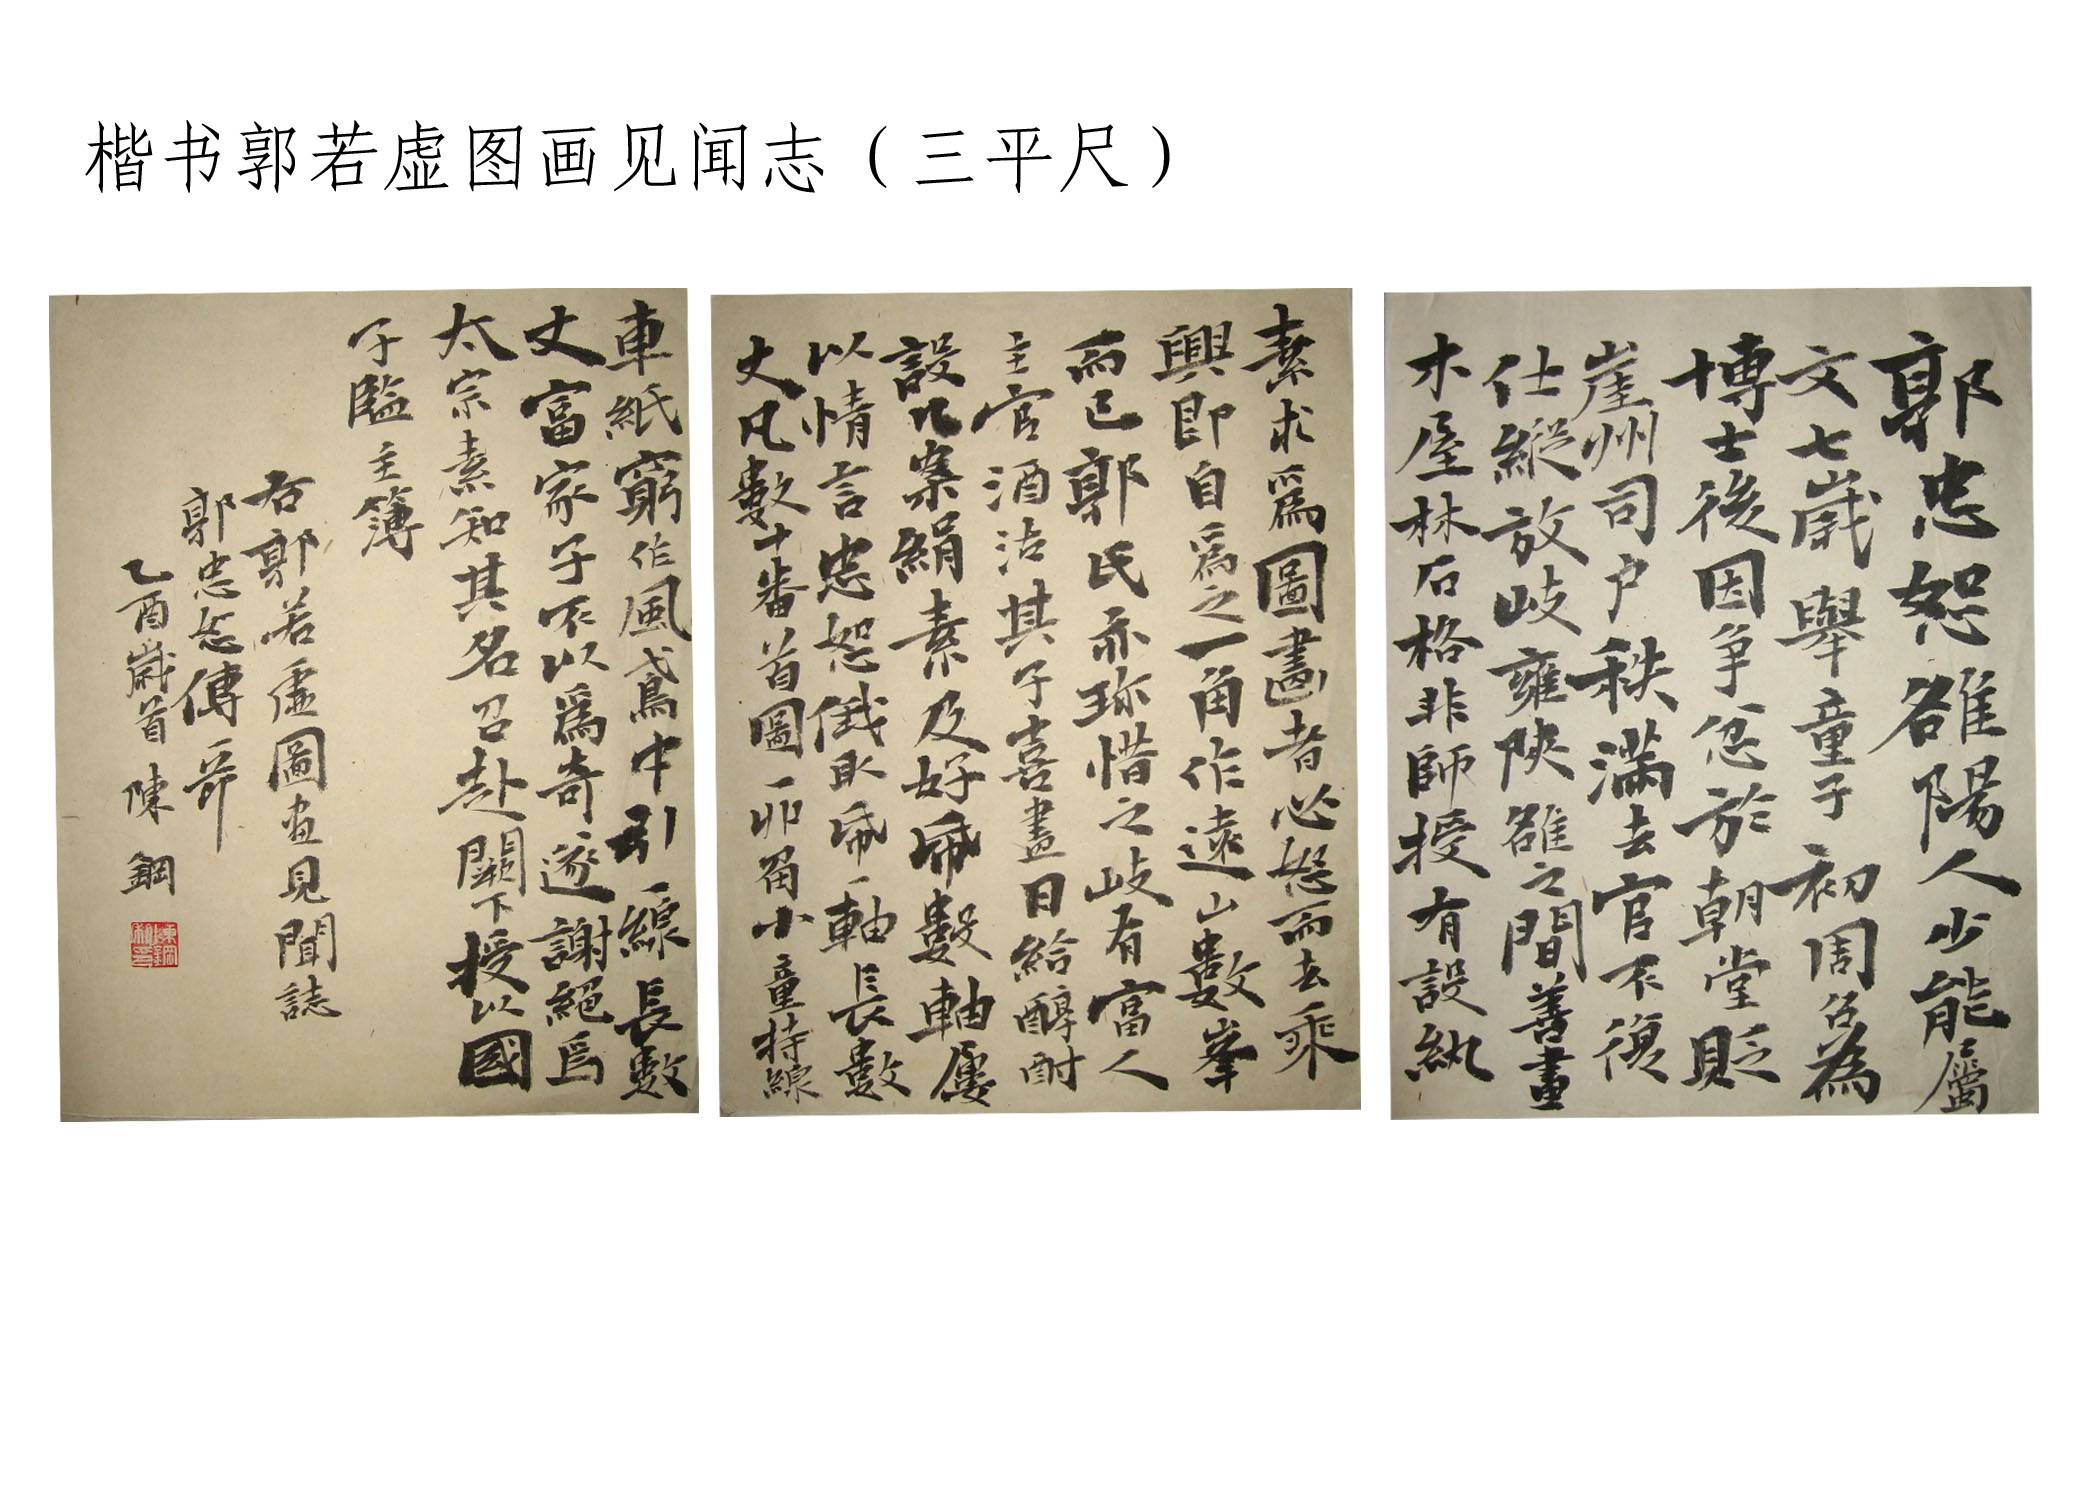 楷书郭若虚图画见闻志（三平尺）
郭忠恕雒陽人少能屬
文七歲舉童子初周召為
博士後因争忿於朝堂貶
崖州司户秩滿去官不復
仕縱放岐雍陝雒之間善畫
木屋林石格非師授有設紈
素求爲圖畫者必怒而去乘
興即自爲之一角作遠山數峯
而已郭氏亦珎惜之岐有富人
主官酒沽其子喜畫日給醇酎
設几案絹素及好帋數軸屢
以情言忠恕俄取帋一軸長數
丈凡數十番首圖一丱角小童持線
車紙窮作風鳶中引一線長數
丈富家子不以爲奇遂謝絕焉
太宗素知其名召赴闕下授以國
子監主簿
右郭若虛圖畫見聞誌
郭忠恕傳一節
乙酉歲首 陳鋼